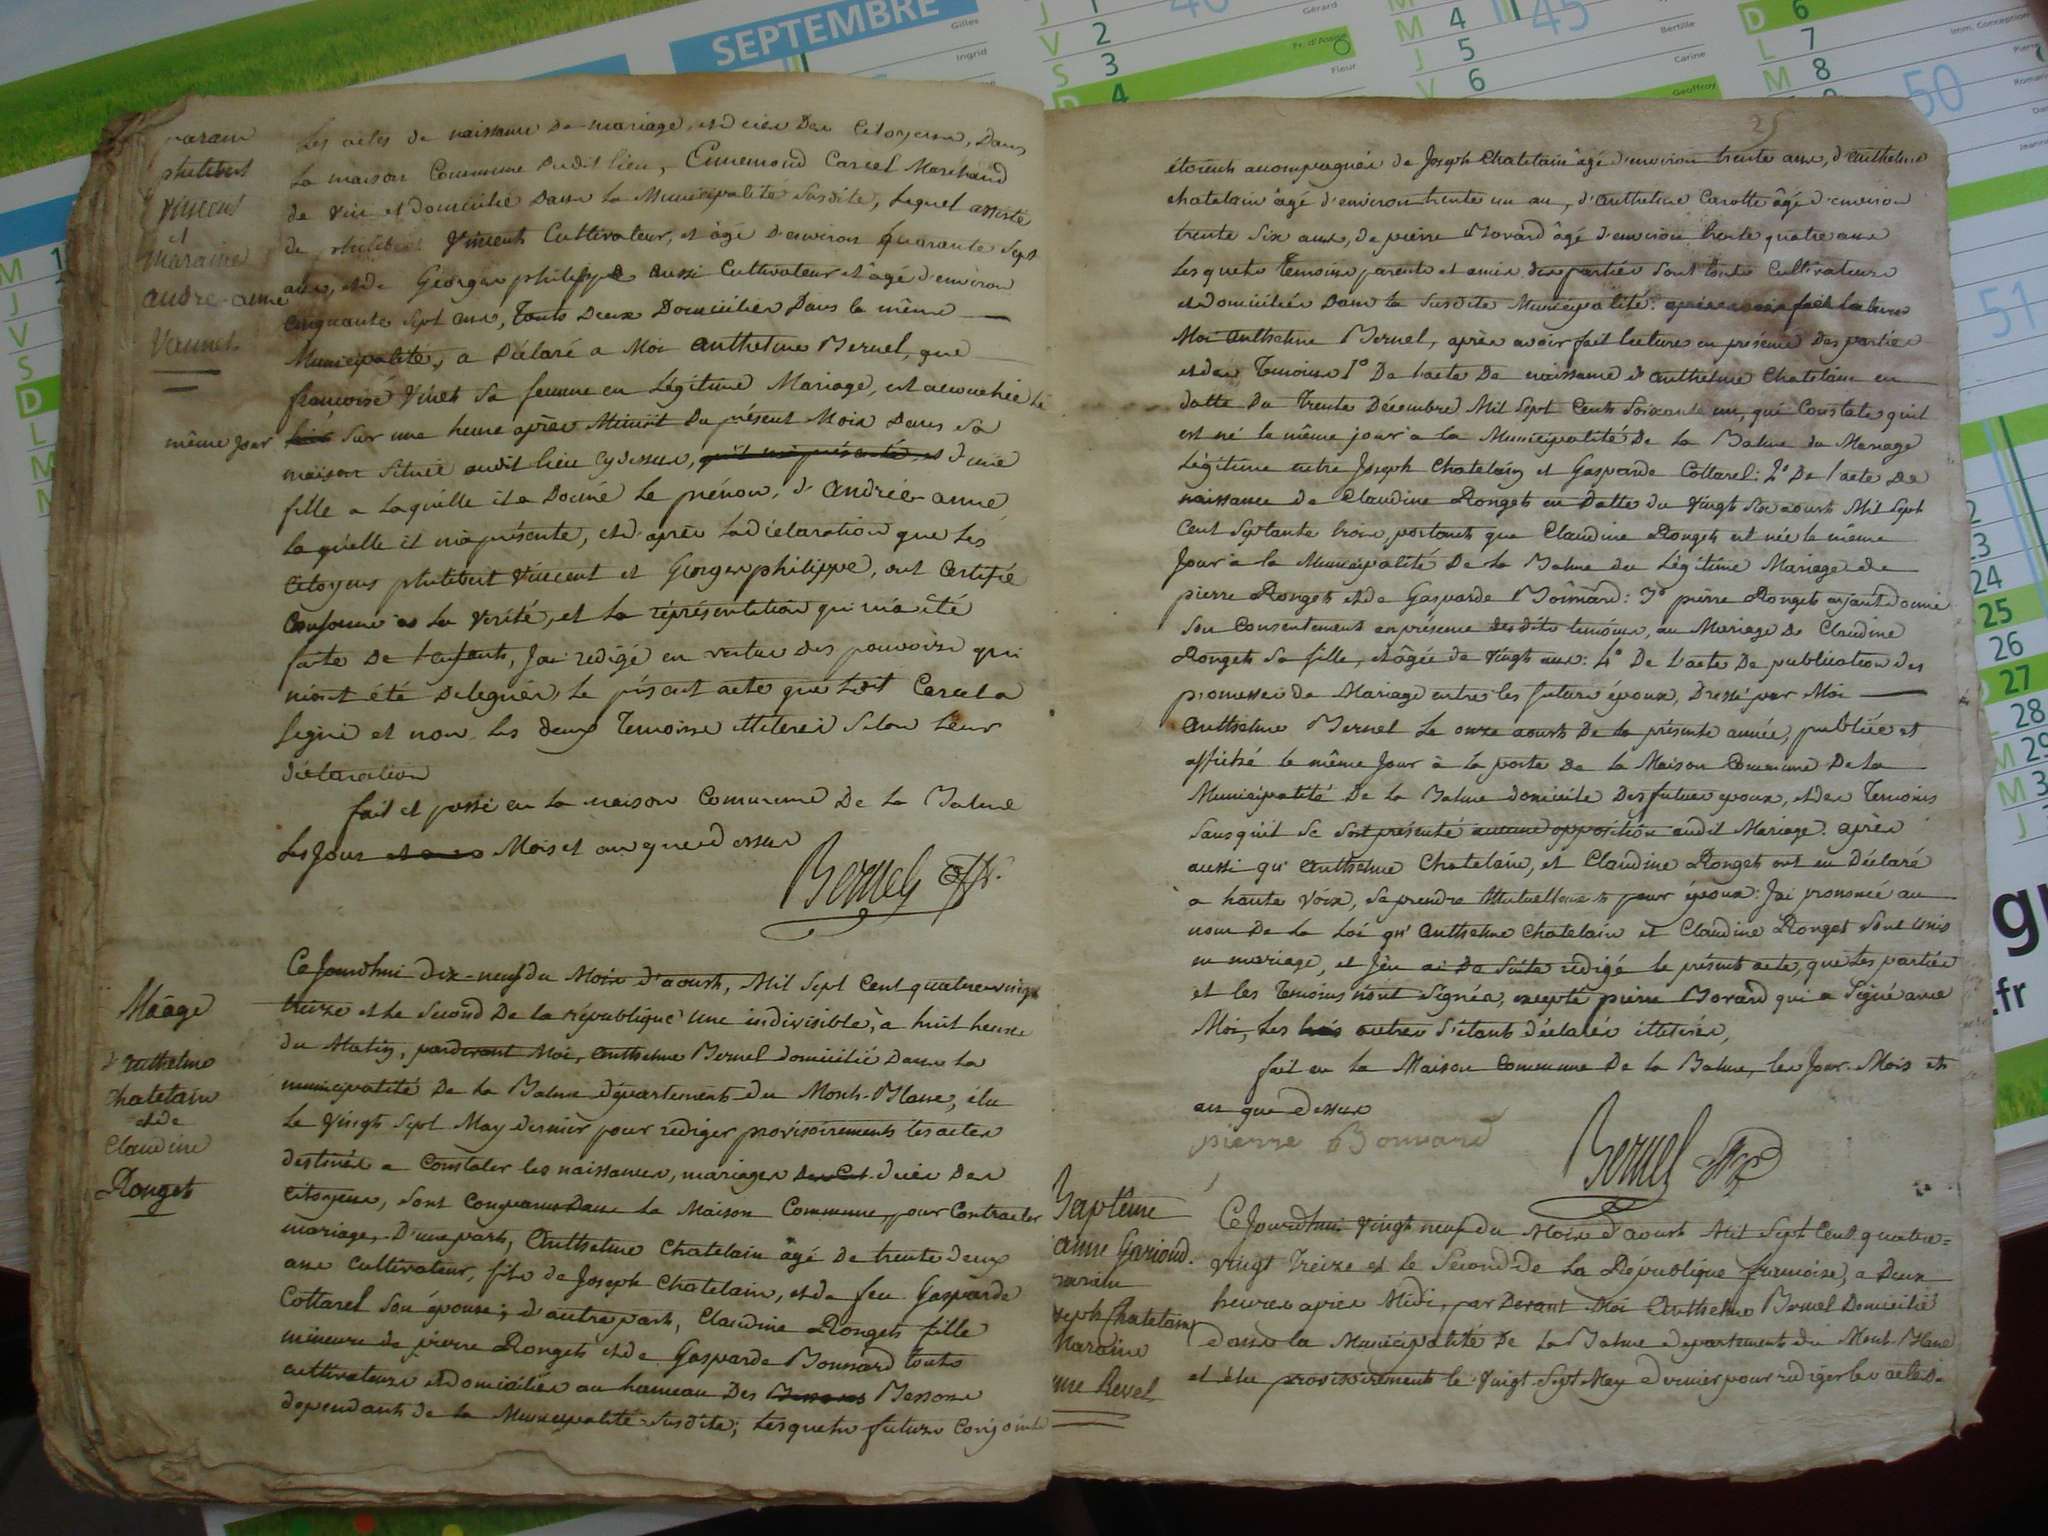 SEPTEMBRE
Gilles
Ingrid
Gérard
Fr. d'Assise
Fleur
Bertille
Carine
Geoffroy
Imm. Conception
45
50
51
parain
philibert
Vincent
et
maraine
andré-anne
Vannet
même jour
Les actes de naissance de mariage, et décès des Citoyens, dans
la maison Commune dudit lieu, Ennemond Carcel Marchand
de vin et domicilié dans la Municipalité susdite, lequel assisté
de philibert Vincent Cultivateur, et âgé d'environ quarante sept
ans, et de Georges philippe aussi Cultivateur et âgé d'environ
Cinquante sept ans, touts deux Domiciliés dans la même
Municipalité, a Déclaré a Moi Anthelme Bernel, que
françoise Vinet sa femme en Légitime Mariage, est acouchée le
sur une heure après Minuit du présent Mois dans sa
maison située audit lieu cydessus, d'une
fille a laquelle il a Donné le prénom, d'andrée anne
laquelle il m'a présenté, et d'après la déclaration que les
Citoyens philibert Vincent et Georges philippe, ont Certifié
Conforme a la vérité, et la réprésentation qui m'a été
faite de l'enfant, J'ai redigé en vertue des pouvoirs qui
m'ont été delegués, le présent acte que ledit Carcel a
signé et non les deux Temoins illiterés selon leur
déclaration
fait et passé en la maison Commune de la Balme
les Jour Mois et an que dessus
Bernel off.
Mâage
d'anthelme
Chatelain
et de
Claudine
Ronget
Ce Jourdhui dix-neuf du Mois d'aoust, Mil Sept Cent quatre vingt
treize et le Second de la république une indivisible, a huit heures
du Matin, pardevant Moi, Anthelme Bernel domicilié dans la
municipalité de la Balme département du Mont-Blanc, élu
le vingt sept May dernier pour rediger provisoirement les actes
destinés a Constater les naissances, mariages et décès des
Citoyens, sont Comparus Dans la Maison Commune, pour Contracter
mariage, D'une part, Anthelme Chatelain âgé de trente deux
ans cultivateur, fils de Joseph Chatelain, et de feu Gasparde
Cottarel son épouse; d'autre part, Claudine Ronget fille
mineure de pierre Ronget et de Gasparde Bonnard touts
cultivateurs et domiciliés au hameau des Bessons
dependant de la Municipalité susdite; lesquels futurs Conjoints
25
étoient acompagnés de Joseph Chatelain âgé d'environ trente ans, d'anthelme
chatelain âgé d'environ trente un an, d'anthelme Carotte âgé d'environ
trente six ans, de pierre Bovard âgé d'environ trente quatre ans
Lesquels Temoins parents et amis des parties sont touts Cultivateurs
et domiciliés dans la susdite Municipalité.
Moi Anthelme Bernel, après avoir fait lecture en présence des parties
et des Temoins 1° De l'acte De naissance d'anthelme Chatelain en
datte du Trente Décembre Mil Sept Cents Soixante un, qui Constate qu'il
est né le même jour a la Municipalité de la Balme du Mariage
Légitime entre Joseph Chatelain et Gasparde Cottarel: 2° De l'acte De
naissance de Claudine Ronget en Datte du Vingt six aoust Mil Sept
Cent Septante trois, portant que Claudine Ronget est née le même
Jour a la Municipalité De la Balme du Légitime Mariage de
pierre Ronget et de Gasparde Bonnard: 3° pierre Ronget ayant donné
son Consentement en présence desdits temoins, au Mariage de Claudine
Ronget sa fille, et âgée de vingt ans: 4° De l'acte De publication des
promesses de Mariage entre les futurs époux, Dressé par Moi
Anthelme Bernel le onze aoust De la présente année, publiée et
affiché le même Jour à la porte de la Maison Commune De la
Municipalité De la Balme domicile Des futurs epoux, et des Temoins
sans qu'il se soit présenté aucune opposition audit Mariage. après
aussi qu'Anthelme Chatelain, et Claudine Ronget ont eu Déclaré
à haute voix, se prendre Mutuellement pour époux: J'ai prononcé au
nom De la Loi qu'Anthelme Chatelain et Claudine Ronget sont unis
en mariage, et J'en ai De Suite redigé le présent acte, que les parties
et les Temoins n'ont Signés, excepté pierre Bovard qui a Signé avec
Moi, les autres s'étants déclarés illiterés,
fait en la Maison Commune De la Balme, les Jour Mois et
an que dessus
pierre Bonvard
Bernel off
Baptême
anne Gariond.
parain
Chatelain
Maraine
Revel
Ce Jourdhui Vingt neuf du Mois d'aoust Mil Sept Cent quatre=
vingt Treize et le Second de la République françoise, a deux
heures après Midi, par Devant Moi Anthelme Bernel Domicilié
dans la Municipalité De la Balme departement du Mont Blanc
et élu provisoirement le vingt Sept May dernier pour rediger les actes